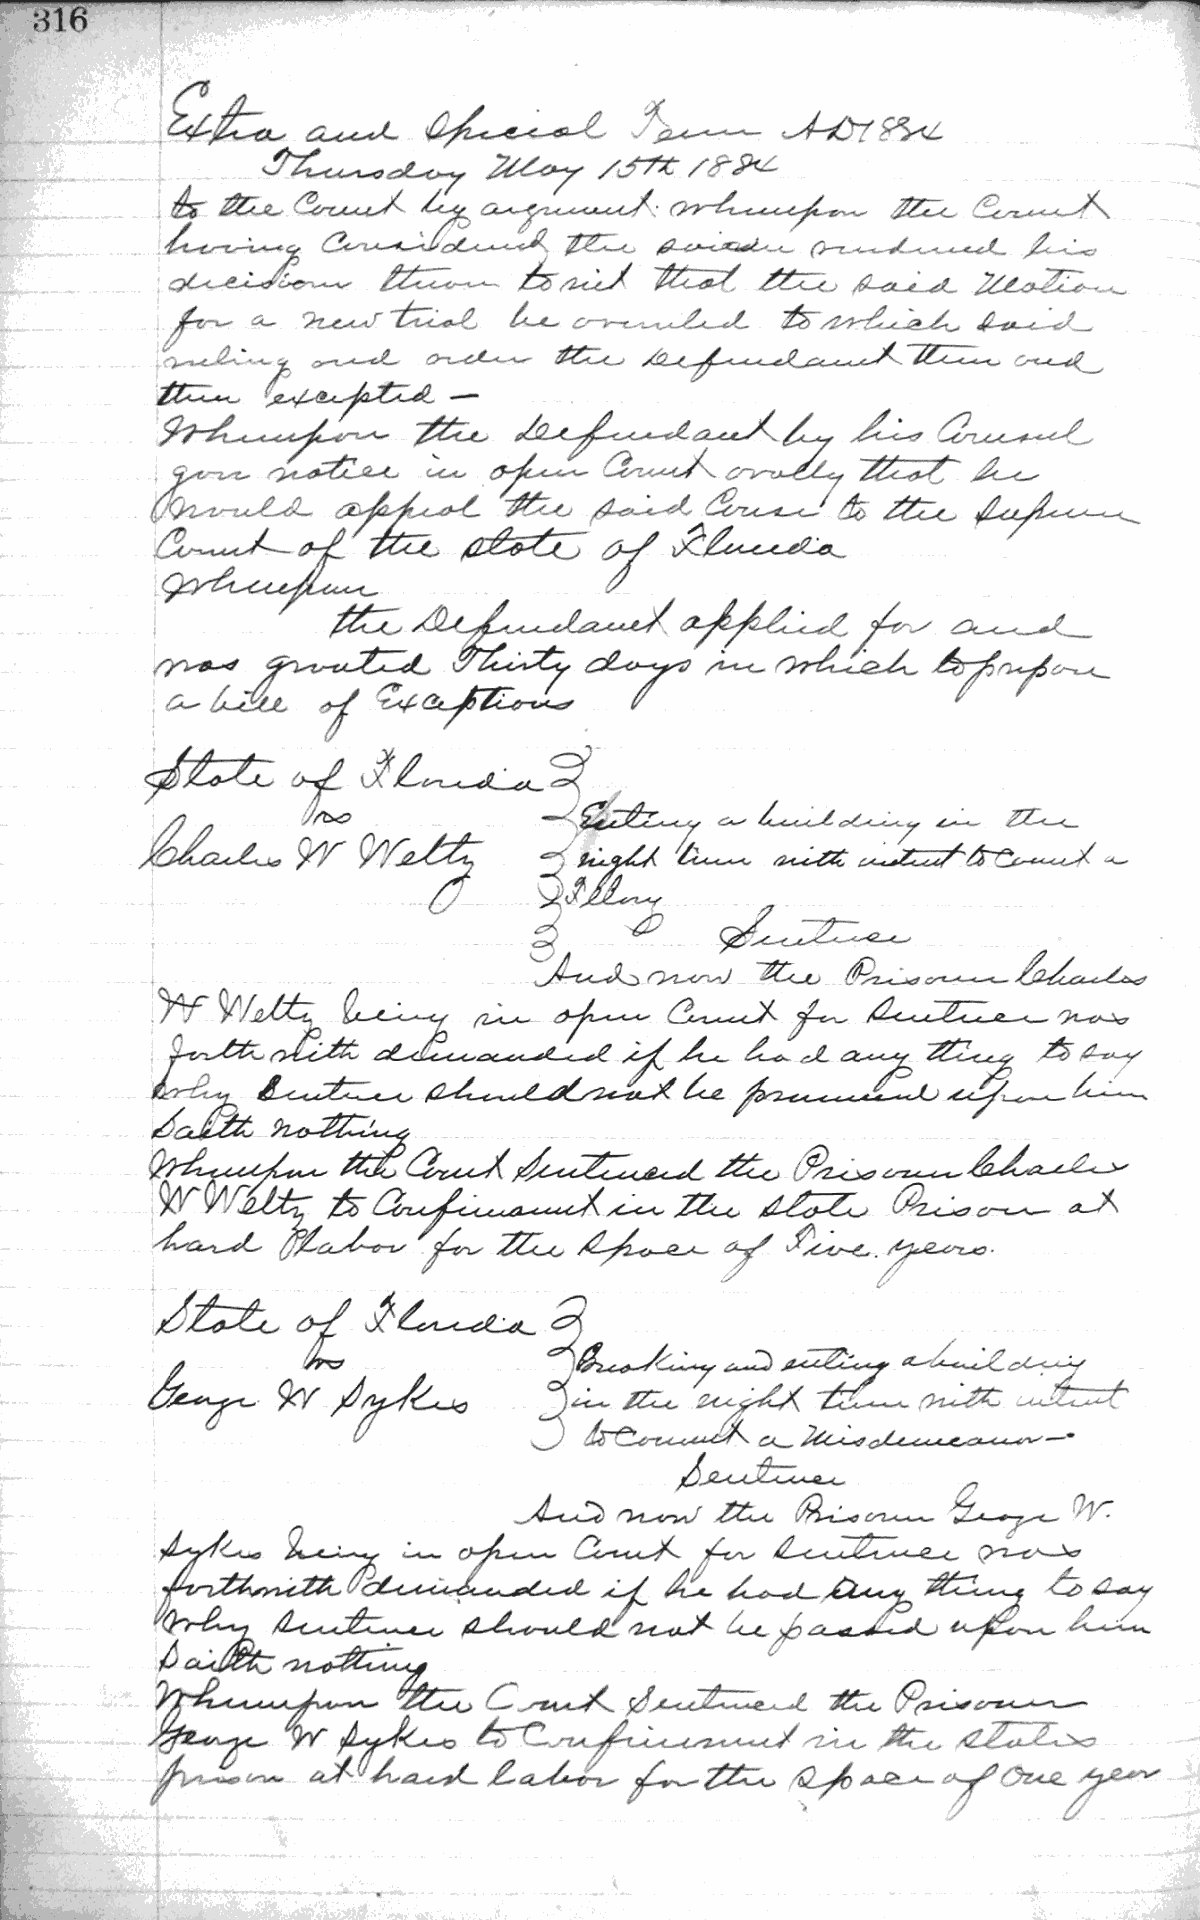 316
Extra and Special Term AD 1884
Thursday May 15th 1884
to the Court by argument. Whereupon the Court
having Considered the rendered his
decision thereon to wit that the said Motion
for a new trial be overruled to which said
ruling and order the Defendant then and
there excepted —
Whereupon the Defendant by his Counsel
gave notice in open Court orally that he
would appeal the said Cause to the Supreme
Court of the State of Florida
Whereupon
the Defendant applied for and
was granted Thirty days in which to prepare
a bill of Exceptions
State of Florida
vs
Charles W Welty
Entering a building in the
night time with intent to Commit a
Felony
Sentence
And now the Prisoner Charles
W Welty being in open Court for Sentence was
forthwith demanded if he had any thing to say
why Sentence should not be pronounced upon him
Saith nothing
Whereupon the Court Sentenced the Prisoner Charles
W Welty to Confinement in the State Prison at
hard labor for the Space of Five years.
State of Florida
vs
George W Sykes
Breaking and entering a building
in the night time with intent
to Commit a Misdemeanor —
Sentence
And now the Prisoner George W.
Sykes being in open Court for Sentence was
forthwith demanded if he had any thing to say
Why Sentence should not be passed upon him
Saith nothing
Whereupon the Court Sentenced the Prisoner
George W Sykes to Confinement in the States
prison at hard labor for the Space of One year